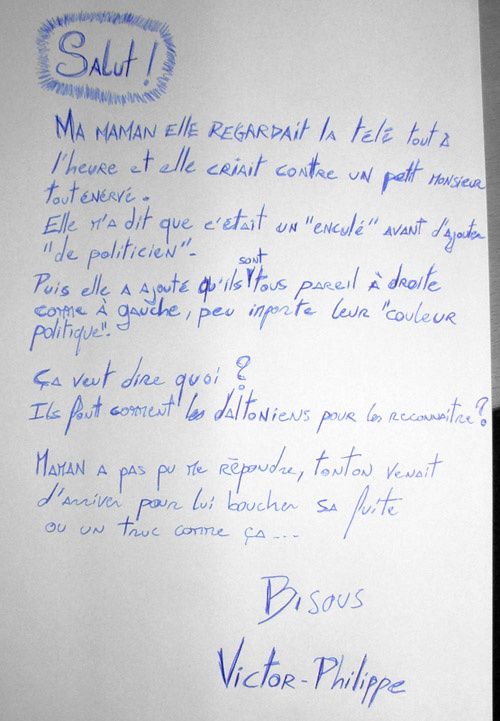 Salut !
Ma maman elle regardait la télé tout à
l'heure et elle criait contre un petit monsieur
tout énervé.
Elle m'a dit que c'était un "enculé" avant d'ajouter
"de politicien".
Puis elle a ajouté qu'ils sont tous pareil à droite
comme à gauche, peu importe leur "couleur
politique".
Ça veut dire quoi ?
Ils font comment les daltoniens pour les reconnaître ?
Maman a pas pu me répondre, tonton venait
d'arriver pour lui boucher sa fuite
ou un truc comme ça...
Bisous
Victor-Philippe